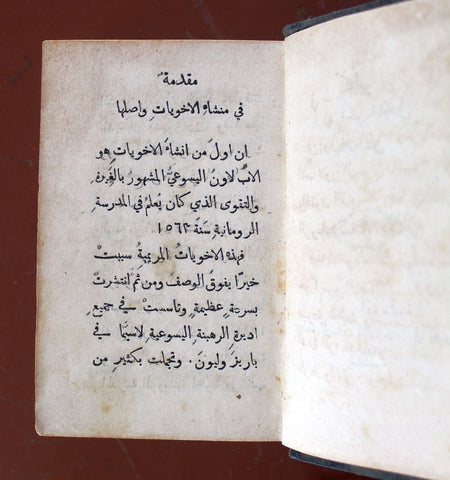 مقدمة
في منشاء الاخويات واصلها
ان اول من انشاء الاخويات هو
الاب لاون اليسوعي المشهور بالغيرة
والتقوى الذي كان يُعلم في المدرسة
الرومانية سنة ١٥٦٣
فهذه الاخويات المريمية سببت
خيرًا يفوق الوصف ومن ثم انتشرت
بسرعةٍ عظيمةٍ وتاسست في جميع
اديرة الرهبنة اليسوعية لاسيما في
باريز وليون. وتجملت بكثيرٍ من